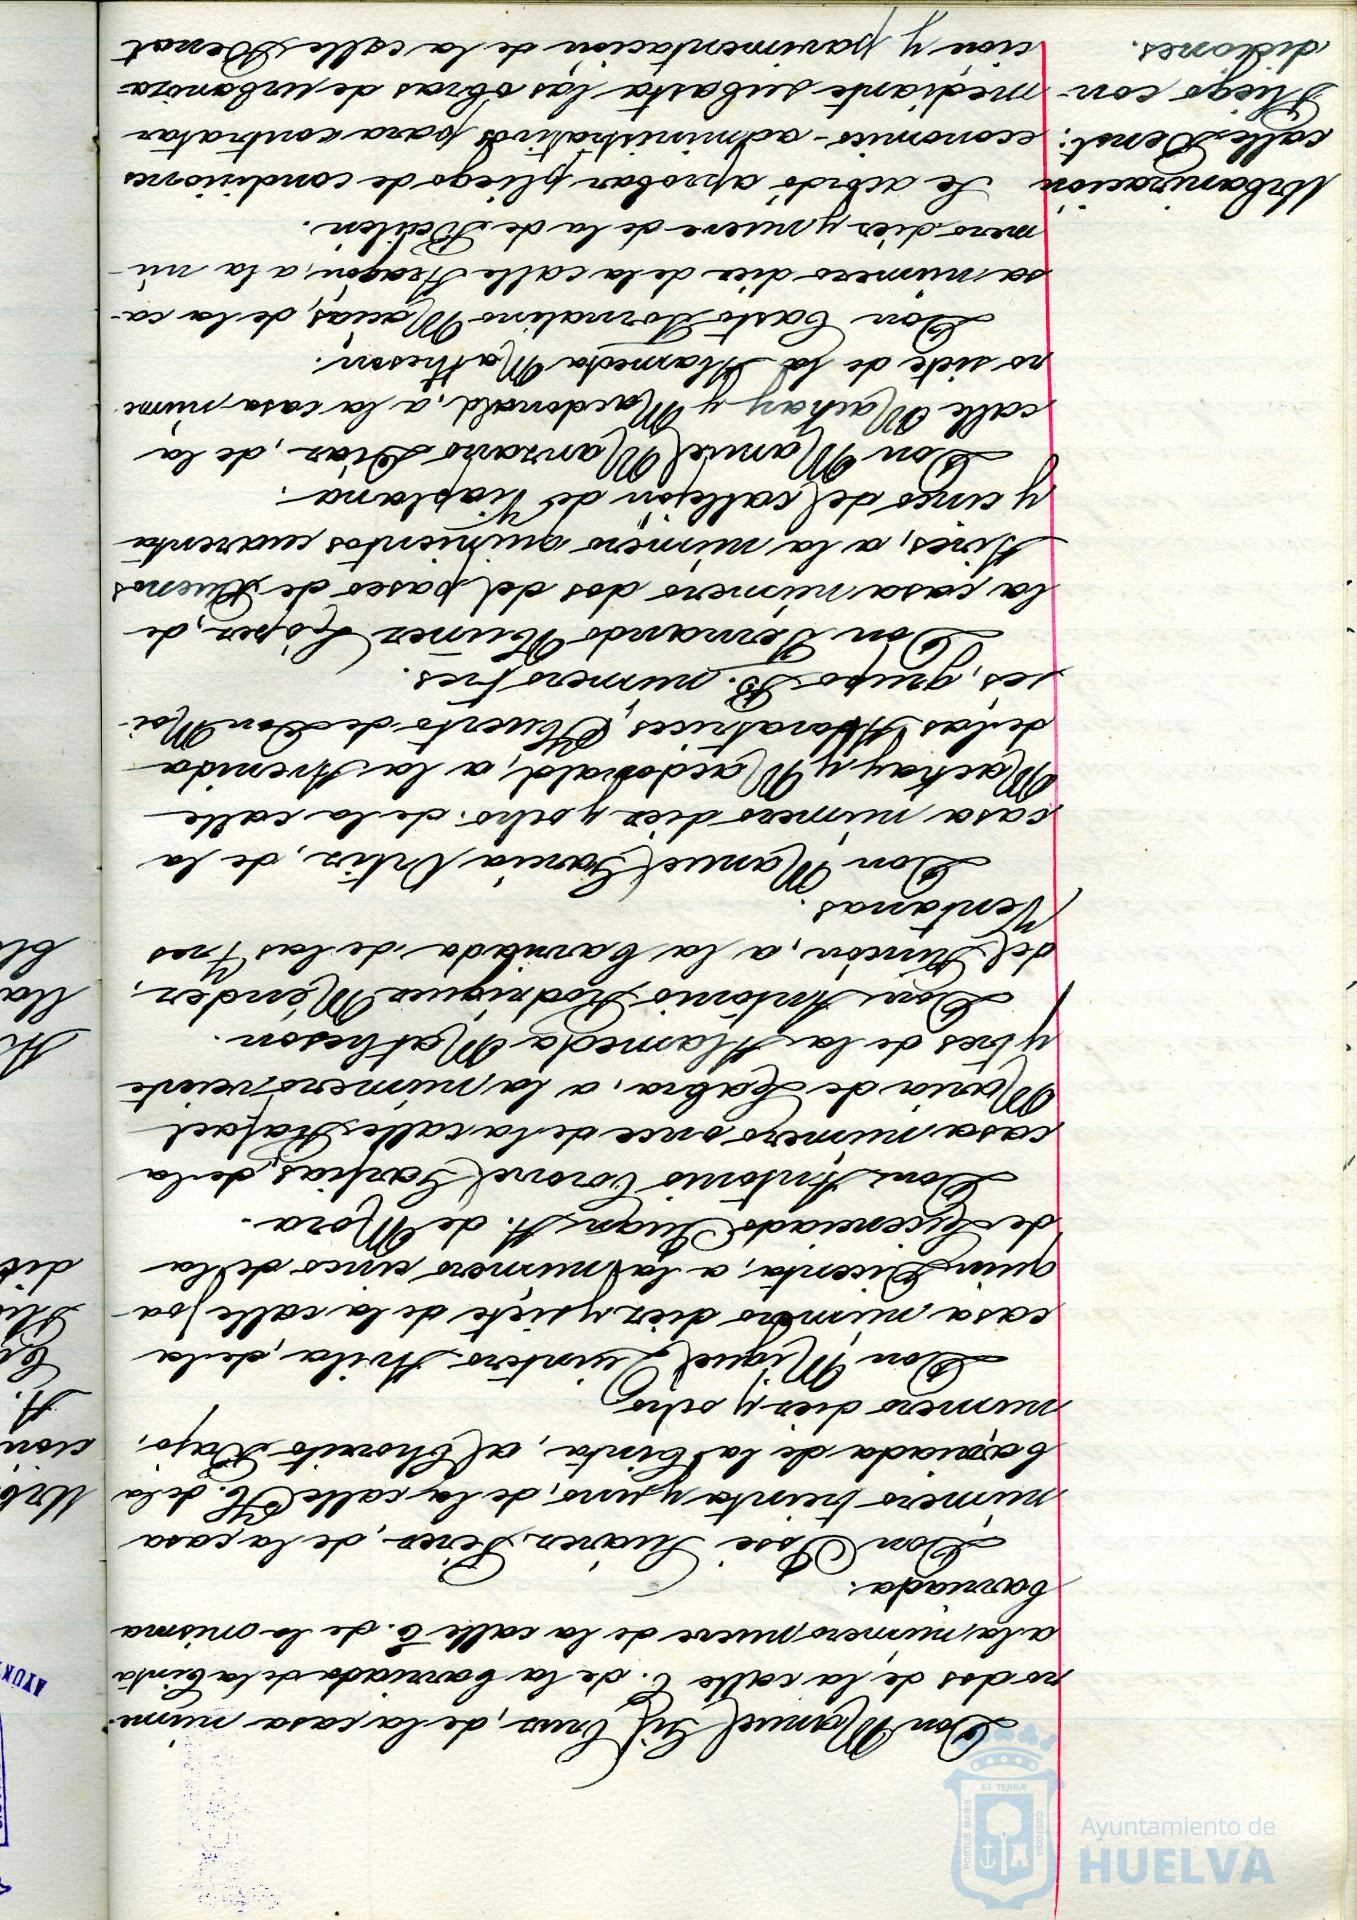 Don Manuel Gil Cruz, de la casa núme-
ro dos de la calle C. de la barriada de la Cinta
a la número nueve de la calle E. de la misma
barriada.
Don José Suárez Pérez, de la casa
número treinta y uno, de la calle H. de la
barriada de la Cinta, al Chorrito Bajo,
número diez y ocho
Don Miguel Quintero Avila, de la
casa número diez y siete de la calle Joa-
quin Dicenta, a la número cinco de la
de Licenciado Juan A. de Mora.
Don Antonio Coronel Garfias, de la
casa número once de la calle Rafael
María de Labra, a la número veinte
y tres de la Alameda Matheson.
Don Antonio Rodríguez Méndez,
del Rincón, a la barriada de las Tres
Ventanas.
Don Manuel García Ortiz, de la
casa número diez y ocho de la calle
Mackay y Macdonald, a la Avenida
de las Adoratrices, Huerto de Don Moi-
ses, grupo B. número tres.
Don Fernando Núñez López, de
la casa número dos del paseo de Buenos
Aires, a la número quinientos cuarenta
y cinco del callejón de Viaplana.
Don Manuel Manzano Díaz, de la
calle Mackay y Macdonald, a la casa núme-
ro siete de la Alameda Matheson.
Don Casto Tornalino Macías, de la ca-
sa número diez de la calle Aragón, a la nú-
mero diez y nueve de la de Bailén.
Urbanización
calle Benot:
Pliego con-
diciones.
Se acordó aprobar pliego de condiciones
económico-administrativas para contratar
mediante subasta las obras de urbaniza-
ción y pavimentación de la calle Benot
AYUN
Ayuntamiento de
HUELVA
PORTUS MARIS
ET TERRAE
CUSTODIA